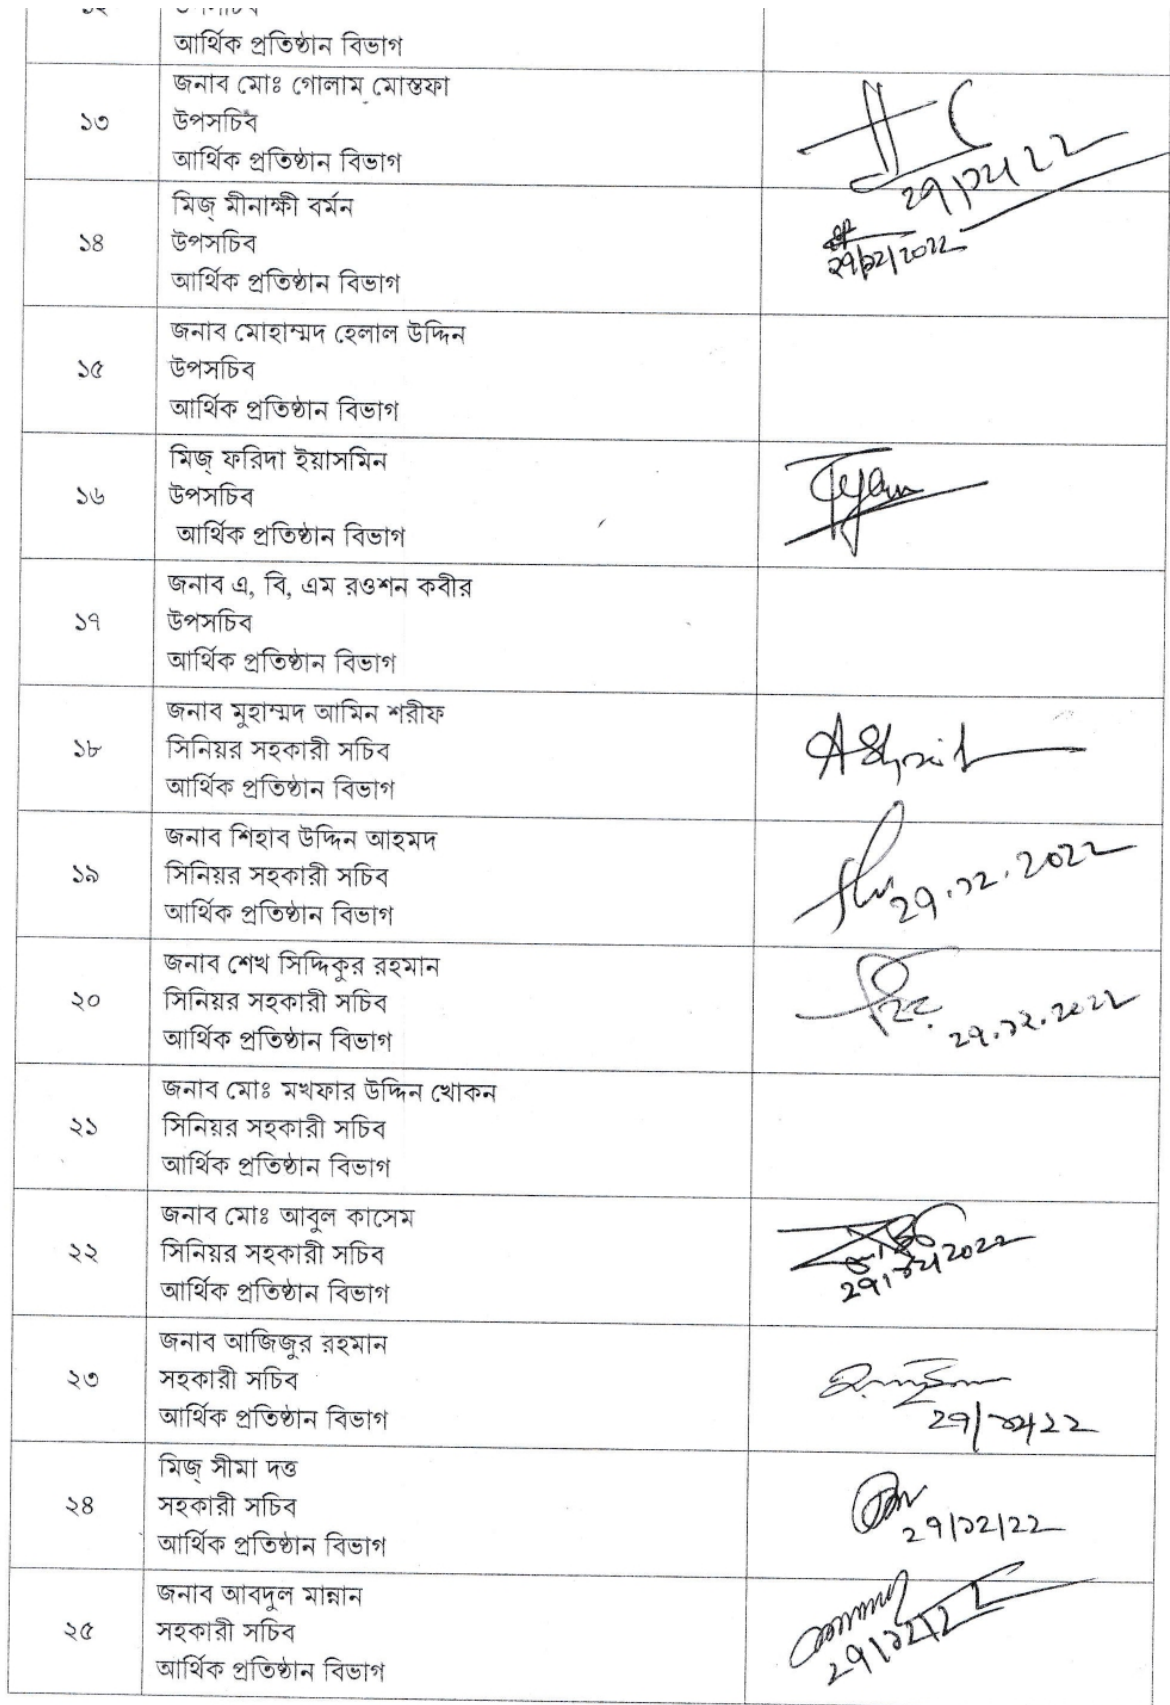 আর্থিক প্রতিষ্ঠান বিভাগ
১৩
জনাব মোঃ গোলাম মোস্তফা
উপসচিব
আর্থিক প্রতিষ্ঠান বিভাগ
২৭/১২/২২
১৪
মিজ্ মীনাক্ষী বর্মন
উপসচিব
আর্থিক প্রতিষ্ঠান বিভাগ
২৭/১২/২০২২
১৫
জনাব মোহাম্মদ হেলাল উদ্দিন
উপসচিব
আর্থিক প্রতিষ্ঠান বিভাগ
১৬
মিজ্ ফরিদা ইয়াসমিন
উপসচিব
আর্থিক প্রতিষ্ঠান বিভাগ
১৭
জনাব এ, বি, এম রওশন কবীর
উপসচিব
আর্থিক প্রতিষ্ঠান বিভাগ
১৮
জনাব মুহাম্মদ আমিন শরীফ
সিনিয়র সহকারী সচিব
আর্থিক প্রতিষ্ঠান বিভাগ
১৯
জনাব শিহাব উদ্দিন আহমদ
সিনিয়র সহকারী সচিব
আর্থিক প্রতিষ্ঠান বিভাগ
২৭.১২.২০২২
২০
জনাব শেখ সিদ্দিকুর রহমান
সিনিয়র সহকারী সচিব
আর্থিক প্রতিষ্ঠান বিভাগ
২৭.১২.২০২২
২১
জনাব মোঃ মখফার উদ্দিন খোকন
সিনিয়র সহকারী সচিব
আর্থিক প্রতিষ্ঠান বিভাগ
২২
জনাব মোঃ আবুল কাসেম
সিনিয়র সহকারী সচিব
আর্থিক প্রতিষ্ঠান বিভাগ
২৭/১২/২০২২
২৩
জনাব আজিজুর রহমান
সহকারী সচিব
আর্থিক প্রতিষ্ঠান বিভাগ
২৭/১২/২২
২৪
মিজ্ সীমা দত্ত
সহকারী সচিব
আর্থিক প্রতিষ্ঠান বিভাগ
২৭/১২/২২
২৫
জনাব আবদুল মান্নান
সহকারী সচিব
আর্থিক প্রতিষ্ঠান বিভাগ
২৭/১২/২২